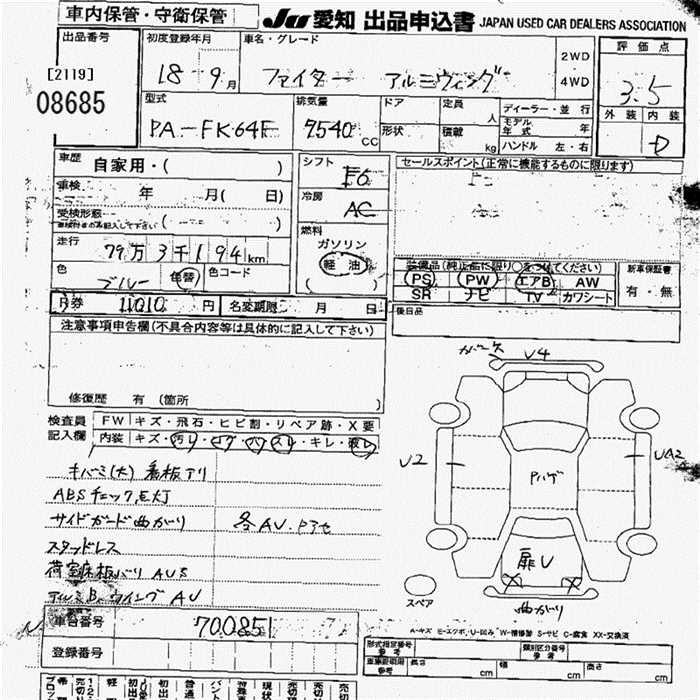 車内保管・守衛保管
JU 愛知 出品申込書 JAPAN USED CAR DEALERS ASSOCIATION
出品番号
[2119]
08685
初度登録年月
18-9月
車名・グレード
ファイター アルミウィング
2WD
4WD
評価点
3.5
外装 内装
D
型式
PA-FK64F
排気量
7540 CC
ドア
形状
定員
人
積載
kg
ディーラー・並行
モデル年式 年
ハンドル 左・右
車歴 自家用・( )
車検 年 月( 日)
受検形態
車検付きのみ記入して下さい ( )
走行 79万3千194km
色 ブルー 色替 色コード
シフト F6
冷房 AC
燃料
ガソリン
軽油
セールスポイント(正常に機能するものに限ります)
装備品(純正品に限り○をつけてください)
PS PW エアB AW
SR ナビ TV カワシート
新車保証書
有・無
R券 11010 円 名変期限 月 日
後日品
注意事項申告欄(不具合内容等は具体的に記入して下さい)
修復歴 有(箇所 )
検査員
記入欄
FW キズ・飛石・ヒビ割・リペア跡・X要
内装 キズ・汚れ・コゲ・穴・スレ・キレ・破レ
キバミ(大) 看板アリ
ABSチェック点灯
サイドガード曲がり
各AU.Pヨセ
スタッドレス
荷室床板バリ AUS
アルミB.ウイング AU
U4
U2
UA2
Pハゲ
扉U
曲がり
スペア
A-キズ E-エクボ U-凹み W-補修跡 S-サビ C-腐食 XX-交換済
車台番号 700851
登録番号
形式指定番号
参考
類別区分番号
参考
車庫証明用
参考
長さ cm
幅 cm
高さ cm